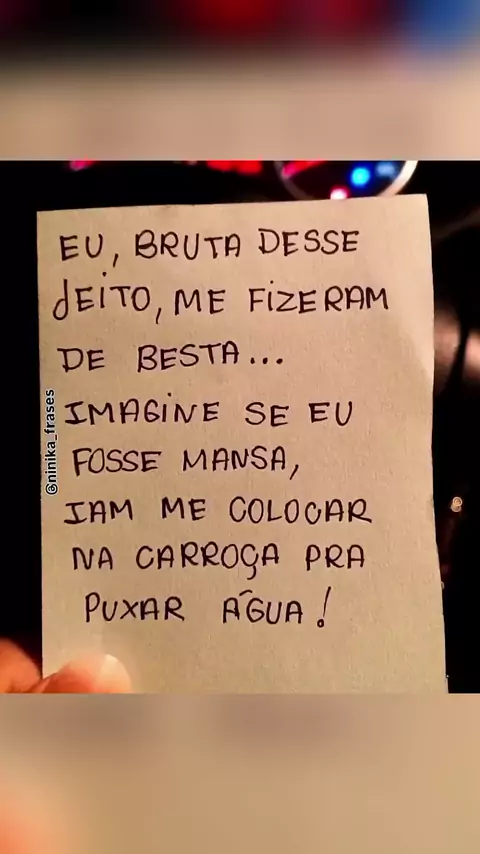 EU, BRUTA DESSE
JEITO, ME FIZERAM
DE BESTA...
IMAGINE SE EU
FOSSE MANSA,
IAM ME COLOCAR
NA CARROÇA PRA
PUXAR ÁGUA!
@ninika_frases